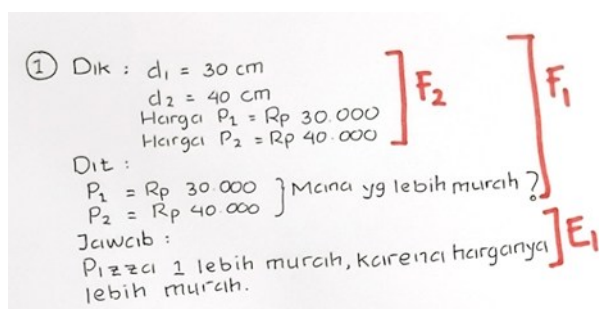 ① Dik : d₁ = 30 cm
d₂ = 40 cm
Harga P₁ = Rp 30.000
Harga P₂ = Rp 40.000
F₂
F₁
Dit :
P₁ = Rp 30.000 } Mana yg lebih murah ?
P₂ = Rp 40.000
Jawab :
Pizza 1 lebih murah, karena harganya
lebih murah.
E₁